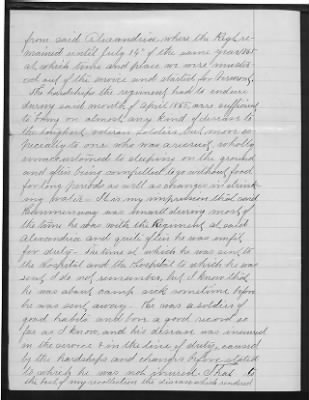 from said Alexandria where the Regt. re-
mained until July 14" of the same year 1865
at which time and place we were muster-
ed out of the service and started for
The hardships the regiment had to endure
during said month of April 1865, were sufficient
to bring on almost any kind of disease to
the toughest veteran soldiers but more es-
pecially to one who was a recruit wholly
unaccustomed to sleeping on the ground
and often being compelled to go without food
for long periods as well as changes in drink-
ing water - It is my impression that said
was unwell during most of
the time he was with the Regiment at said
Alexandria and quite often he was unfit
for duty - The time at which he was sent to
the Hospital and the Hospital to which he was
sent I do not remember, but I know that
he was about camp sick sometime before
he was sent away. He was a soldier of
good habits and bore a good record so
far as I know and his disease was incurred
in the service & in the line of duty, caused
by the hardships and changes before stated
to which he was not inured. That to
the best of my recollection the disease which rendered